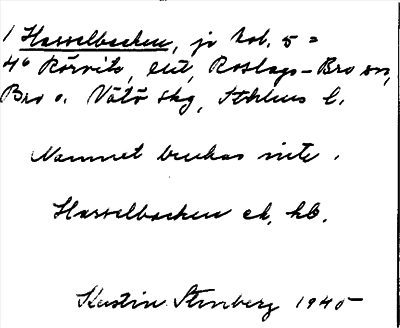 1 Hasselbacken, jr kol. 5 =
4⁶ Rörvik, lht, Roslags-Bro sn,
Bro o. Vätö skg, Sthlms l.
Namnet brukas inte.
Hasselbacken ek. kb.
Kerstin Stenberg 1945